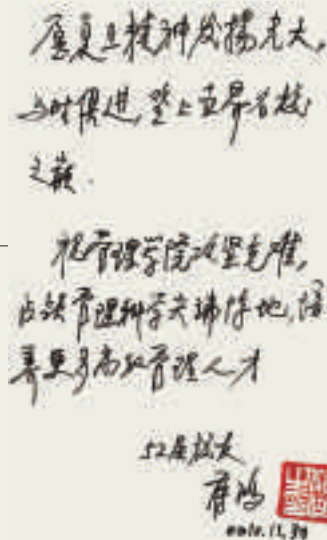 厦夏上精神发扬光大,
与时俱进,登上世界名校
之巅.
祝管理学院攻坚克难,
占领管理科学交沸阵地,培
养更多高级管理人才
52届校友
2010.11.30